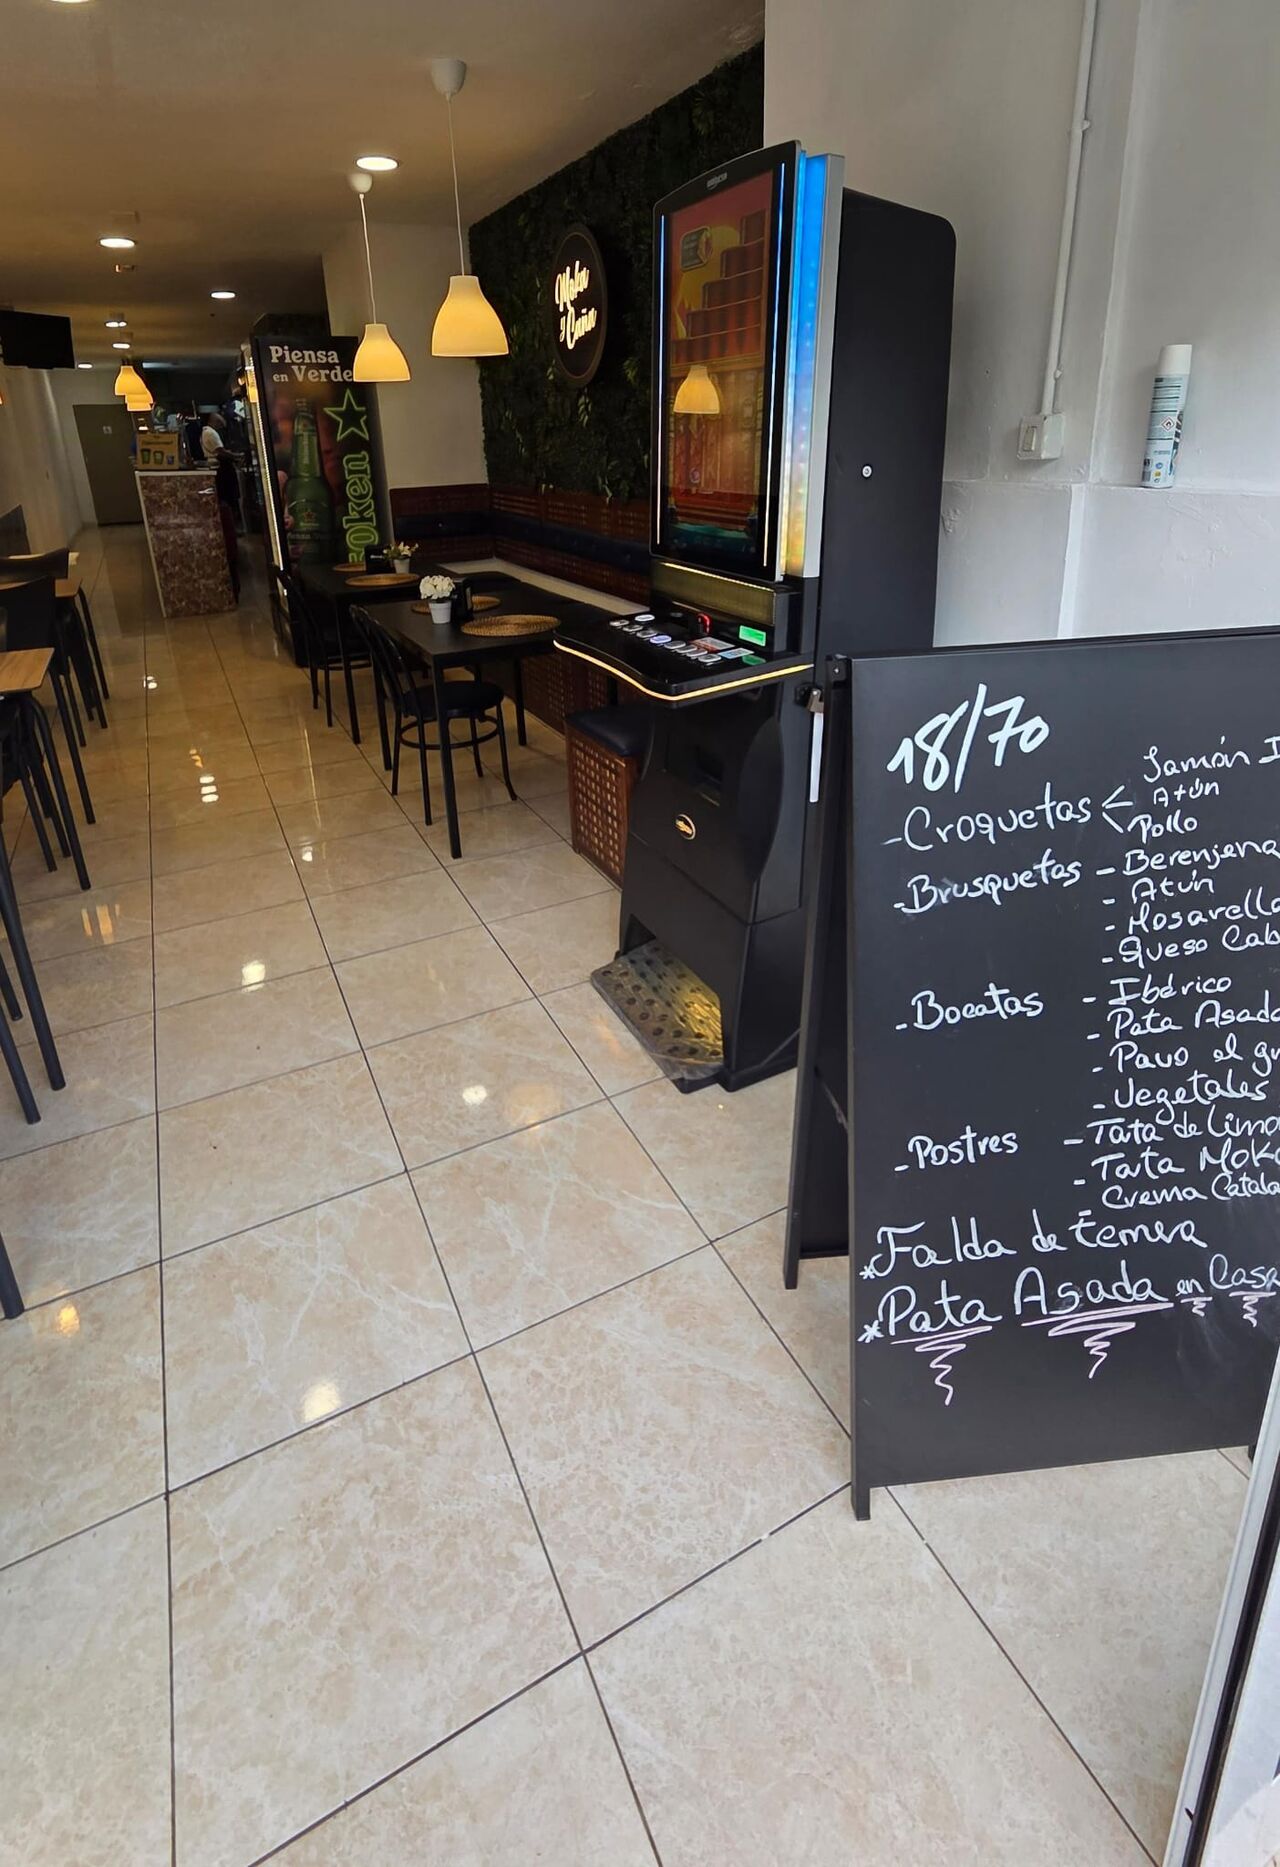 Piensa
en Verde
Moka
y
Caña
18/70
-Croquetas < Jamón
Atún
Pollo
-Brusquetas - Berenjena
- Atún
- Mosarella
- Queso Cab
-Bocatas - Ibérico
- Pata Asada
- Pavo el
- Vegetales
-Postres - Tata de Limo
- Tarta Moka
- Crema Catala
*Falda de ternera
*Pata Asada en Casa